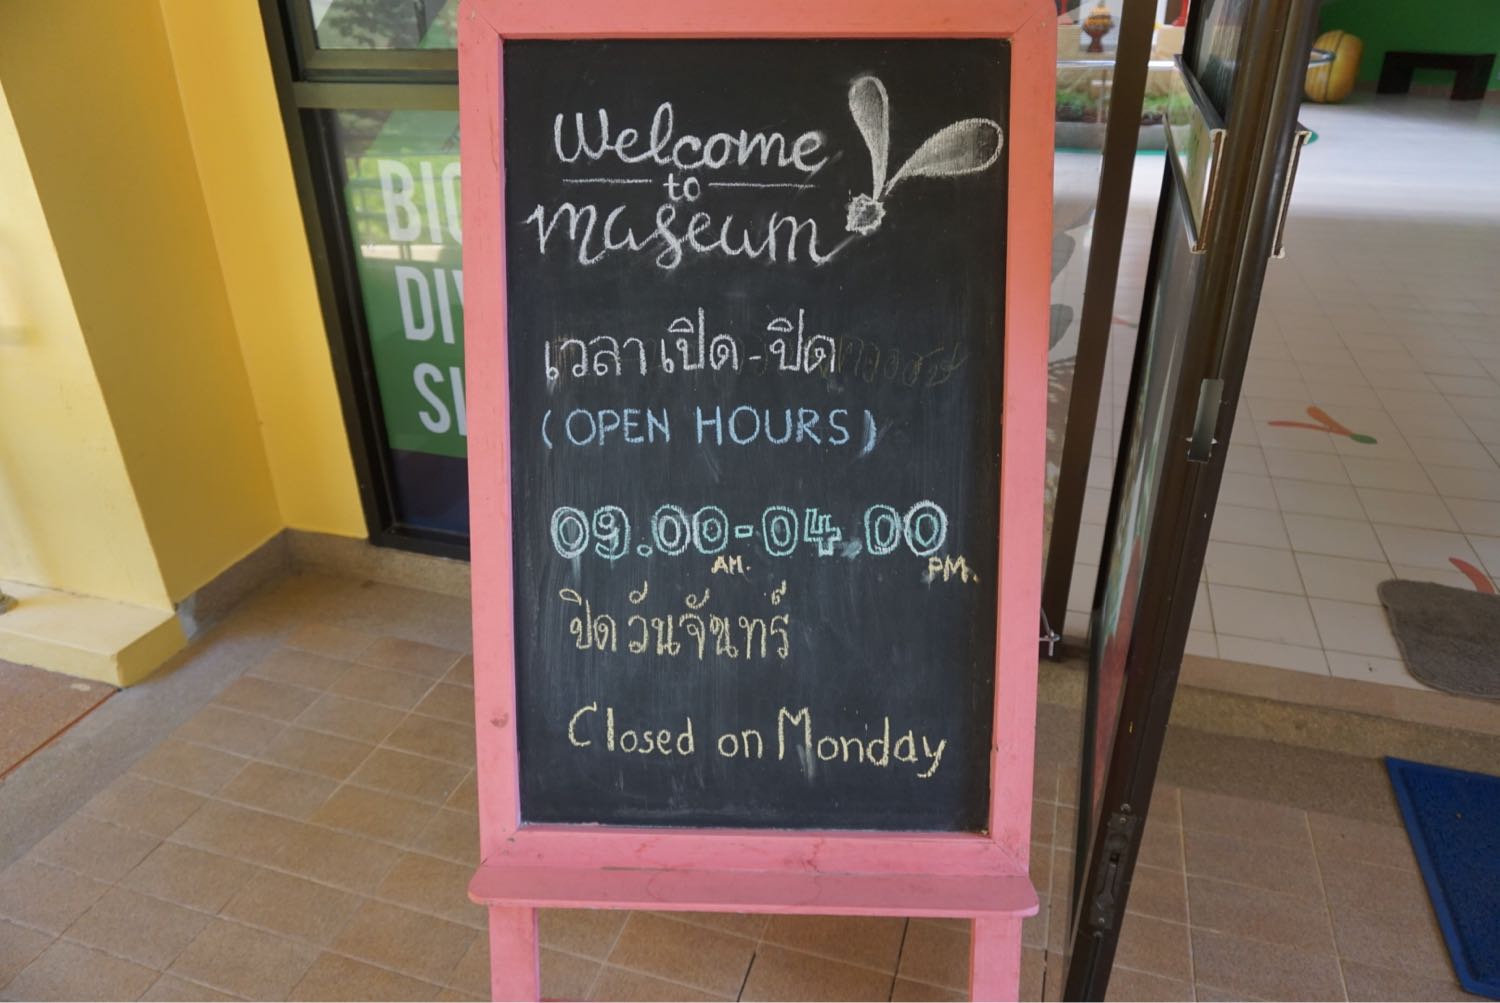 Welcome
to
Museum
เวลาเปิด-ปิด
(OPEN HOURS)
09.00-04.00
AM. PM.
ปิดวันจันทร์
Closed on Monday
BIO
DIV